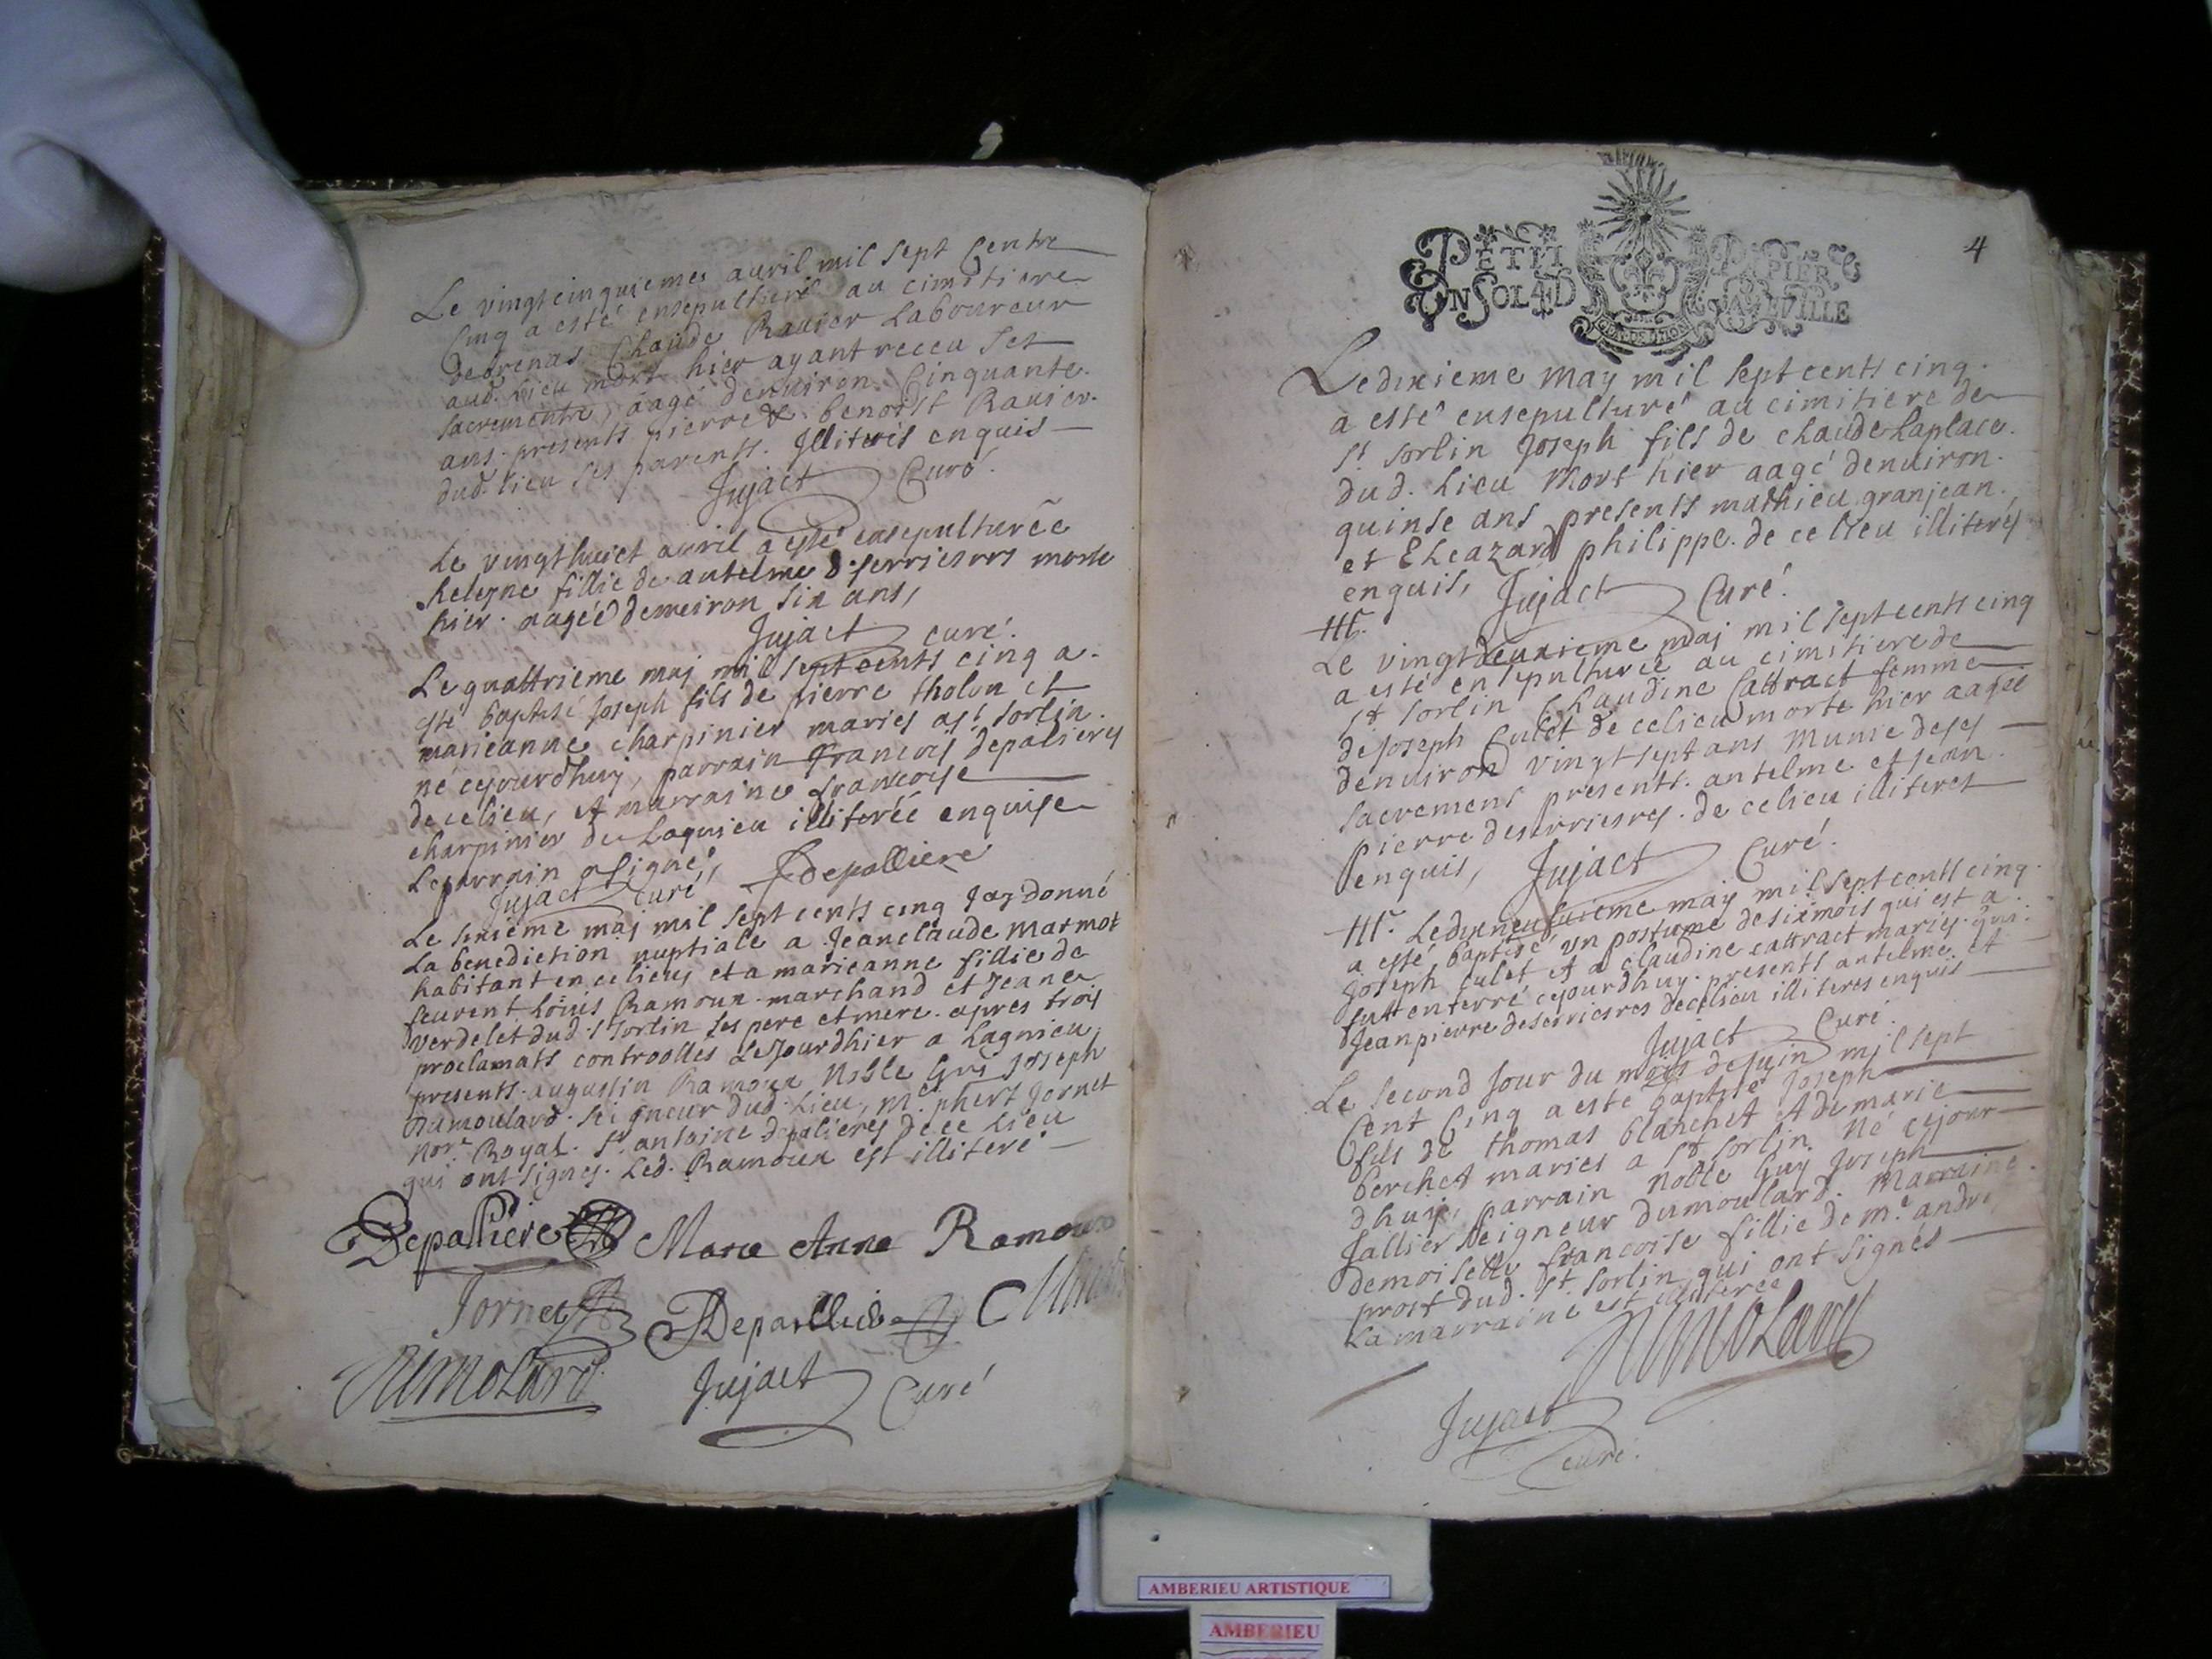 Le vingtcinquiemes auril mil sept Cents
Cinq a esté ensepulturé au cimitiere
debrenas Claude Rauier Laboureur
aud. Lieu mort hier ayant receu ses
sacrements aagé denuiron Cinquante
ans. presents pierre & benoist Rauier
dud. lieu ses parents. Illiterés enquis
Jujact Curé.
Le vingthuict auril a esté ensepulturée
heleyne fillie de antelme deserriesres morte
hier. aagéé denuiron six ans,
Jujact curé.
Le quattrieme maj mil sept cents cinq a
esté baptisé Joseph fils de pierre tholon et
marieanne charpinier mariés a st sorlin.
né cejourdhuy, parrain francois depalieres
de ce lieu, et marraine francoise
charpinier de Lagnieu illiterée enquise
Leparrain a signé,
Jujact Curé fdepalliere
Le sixieme maj mil sept cents cinq Jay donné
La benediction nuptiale a Jeanclaude marmot
habitant en ce lieu, et a marieanne fillie de
feurent Loüis Ramoux marchand et Jeane
Verdelet dud. st Sorlin ses pere et mere. apres trois
proclamats controollés Lejourdhier a Lagnieu,
presents. augustin Ramoux Noble Guÿ Joseph
dumoulard. seigneur dud. Lieu, me. phert Jornet
Nore. Royal. Sr. antoine depalieres de ce Lieu
qui ont signés. Led. Ramoux est illiteré
Depalliere Marie Anne Ramoux
Jornet Depalliere
Dumolard Jujact Curé
4
PETIT PAPIER
UN SOL 4 D LA FEUILLE
GEN DE DIION
Ledixieme may mil sept cents cinq.
a esté ensepulturé au cimitiere de
St sorlin Joseph fils de claude Laplace.
dud. Lieu Mort hier aagé denuiron.
quinse ans presents mathieu granjean.
et Eleazard philippe. de ce lieu illiterés
enquis, Jujact Curé.
Le vingtdeuxieme maj mil septcents cinq
a esté ensepulturée au cimitiere de
st sorlin Claudine Cattract femme
de Joseph Culet de celieu morte hier aagée
denuiron vingt sept ans Munie deses
sacremens presents. antelme et Jean
pierre deserriesres. de ce lieu illiteres
enquis, Jujact Curé.
mil septcents cinq.
a esté baptisé un postume desixmois qui est a
Joseph Culet et a claudine cattract mariés. qui
futt enterré cejourdhuy. presents antelme et
Jeanpierre deserriesres decelieu illiteres enquis
Jujact Curé.
Le second Jour du mois deJuin mil sept
Cent Cinq a esté baptisé Joseph
fils de thomas blanchet et de marie
berchet mariés a st sorlin. Né cejour
dhuy, parrain Noble Guy Joseph
Jallier seigneur dumoulard. Marraine
demoiselle francoise fillie de me. andré
prost dud. st. sorlin qui ont signés
La marraine est illiterée
Dumolard
Jujact
curé.
AMBERIEU ARTISTIQUE
AMBERIEU